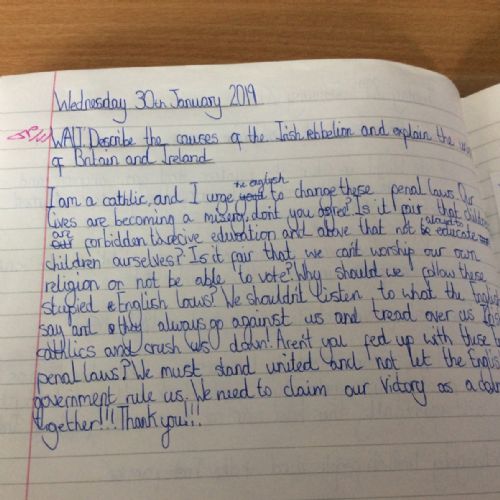 Wednesday 30th January 2019
WALT Describe the causes of the Irish rebbelion and explain the
of Britain and Ireland
I am a cathlic, and I urge the english to change these penal laws. Our
lives are becoming a misery, don't you agree? Is it fair that children
are forbidden to recive education and above that not be educate
children ourselves? Is it fair that we cant worship our own
religion or not be able to vote? Why should we follow these
stupied English laws? We shouldnt listen to what the English
say and they always go against us and tread over us
cathlics and crush us down! Arent you fed up with these
penal laws? We must stand united and not let the English
government rule us. We need to claim our victory as a
together!!! Thank you!!!